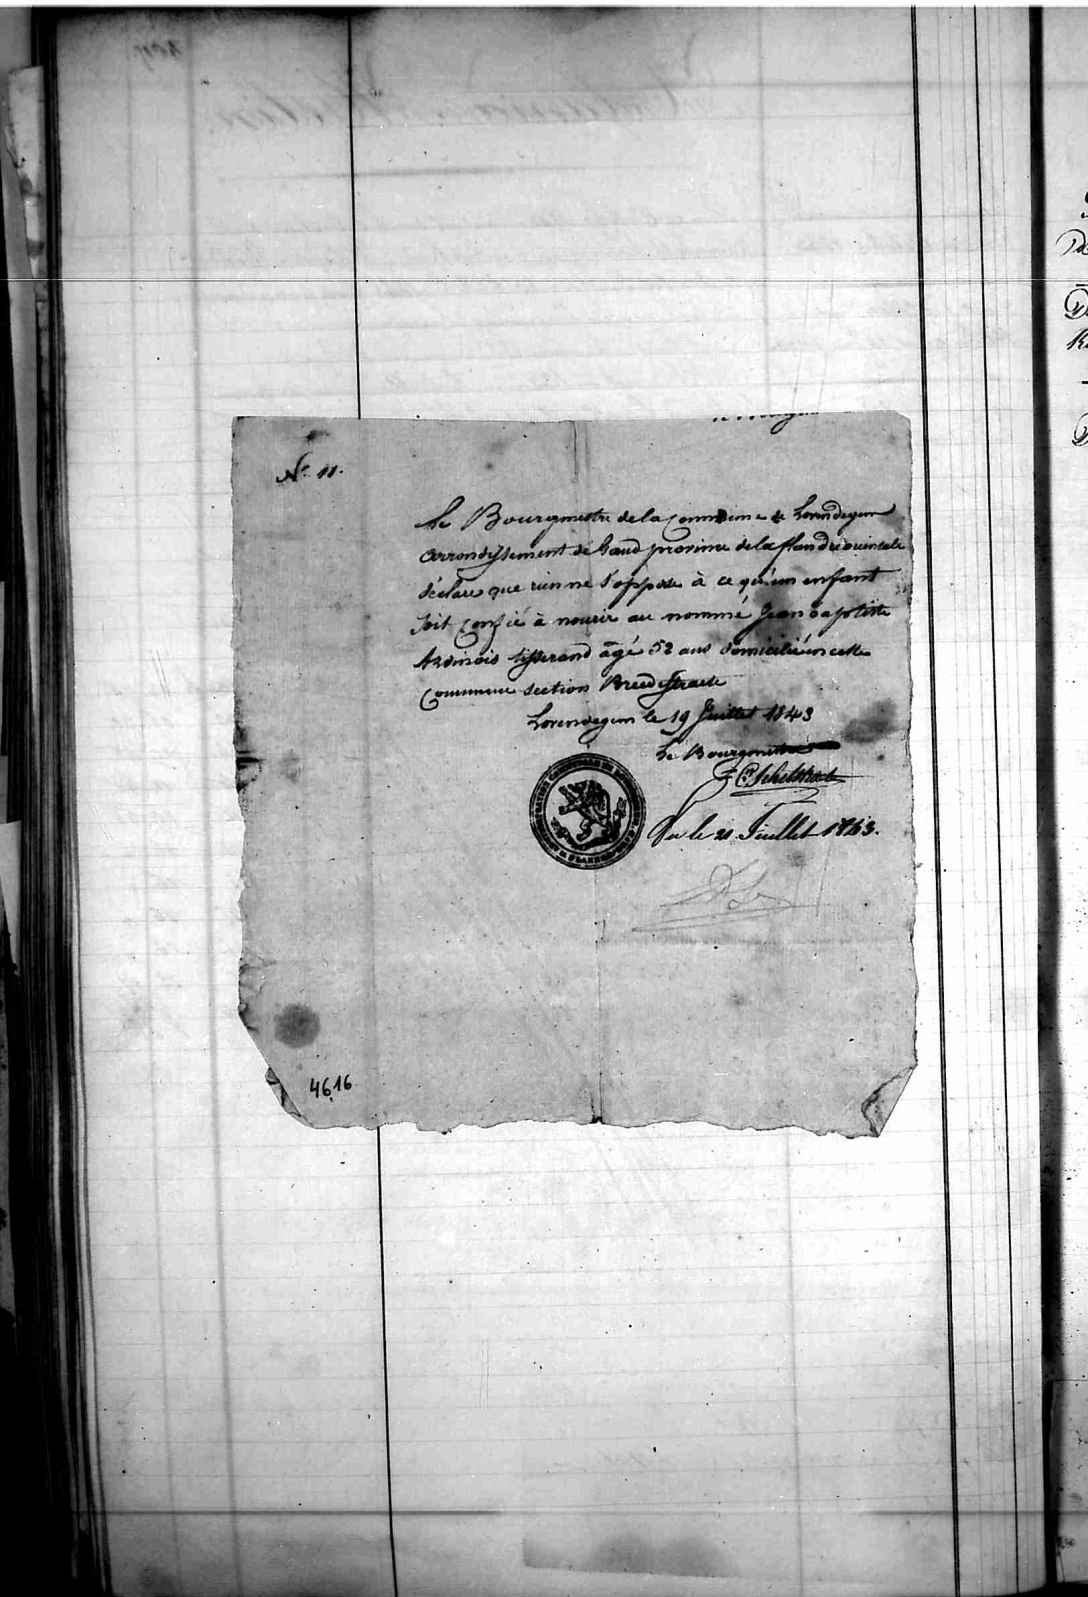 N° 11.
Le Bourgmestre de la Commune de Lovendegem
arrondissement de Gand province de la flandre orientale
déclare que rien ne s'oppose à ce qu'un enfant
soit confié à nourir au nommé Jean baptiste
tisserand âgé 52 ans domicilié en cette
Commune section Breedestraete
Lovendegem le 19 Juillet 1843
Le Bourgmestre
Vu le 21 Juillet 1843.
4616